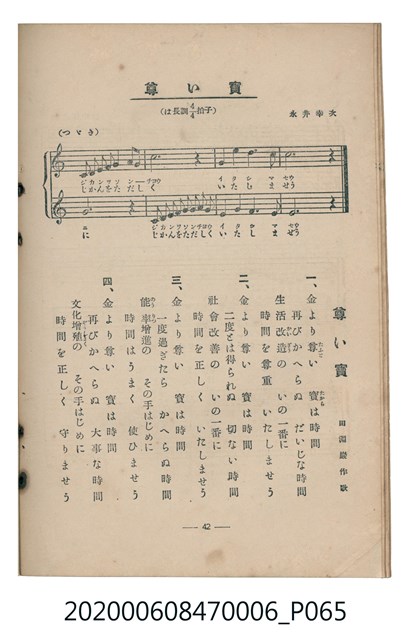 尊い寶
(は長調 4/4 拍子)
永井幸次
(つゞき)
ジカンヲソンチョウ イタシマセウ
じかんをただしく いたしませう
ニ ジカンヲソンチョウ イタシマセウ
に じかんをただしく いたしませう
尊い寶
田淵巖作歌
一、金より尊い 寶は時間
再びかへらぬ だいじな時間
生活改造の いの一番に
時間を尊重 いたしませう
二、金より尊い 寶は時間
二度とは得られぬ 切ない時間
社會改善の いの一番に
時間を正しく いたしませう
三、金より尊い 寶は時間
一度過ぎたら かへらぬ時間
能率增進の その手はじめに
時間はうまく 使ひませう
四、金より尊い 寶は時間
再びかへらぬ 大事な時間
文化增殖の その手はじめに
時間を正しく 守りませう
— 42 —
202000608470006_P065